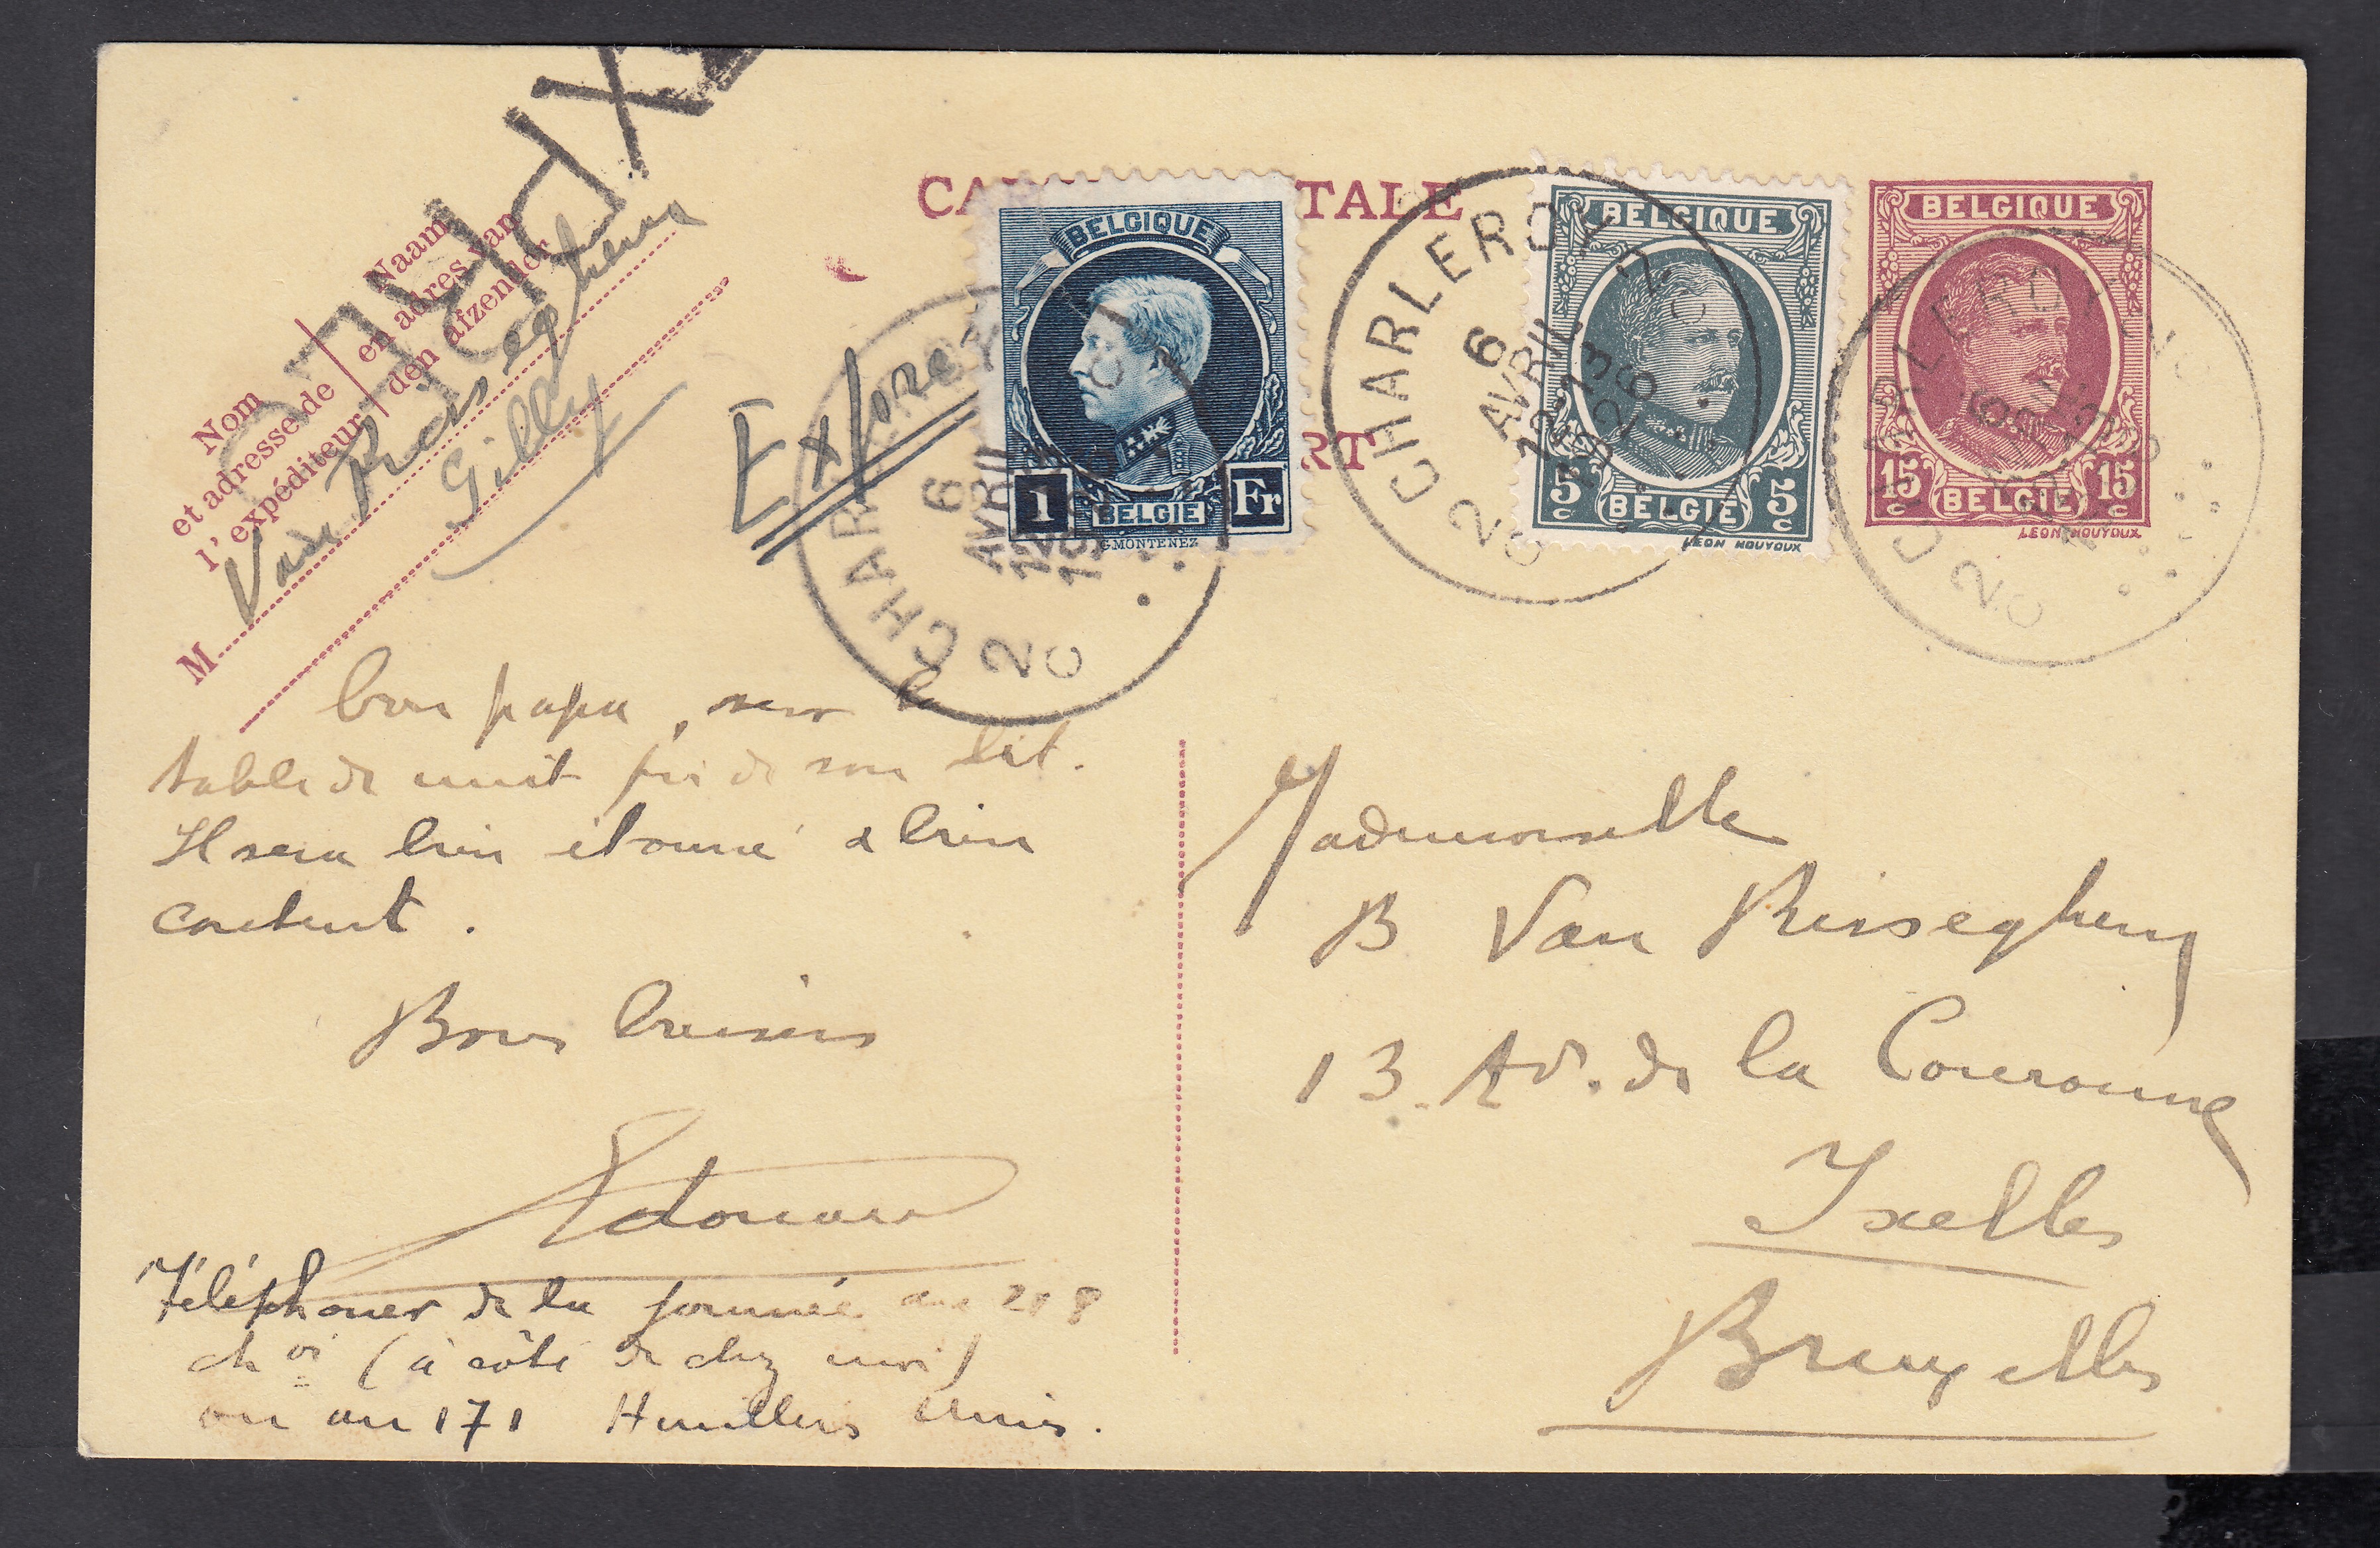 EXPRES
Nom
et adresse de
l'expéditeur
Naam
en adres van
den afzender
M
Van Risseghem
Gilly
Expres
CA TALE
RT
BELGIQUE
1 BELGIE Fr
G. MONTENEZ
BELGIQUE
5 c BELGIE 5 c
LEON HOUYOUX
BELGIQUE
15 c BELGIE 15 c
LEON HOUYOUX
CHARLEROY
6
AVRIL
2 C
CHARLEROY
6
AVRIL
12-13
1926
2 C
CHARLEROY
6
2 C
bon papa, sur la
table de nuit près de son lit.
Il sera bien étonné & bien
content.
Bons baisers
Edouard
Téléphoner de la journée au 208
ch oi (à côté de chez moi)
ou au 171 Houillères Unies.
Mademoiselle
B Van Risseghem
13 Av. de la Couronne
Ixelles
Bruxelles